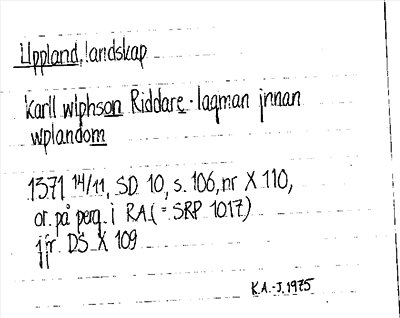 Uppland, landskap
karll wlphson Riddare · laqman jnnan
wplandom
1371 14/11, SD 10, s. 106, nr X 110,
or. på perg. i RA (= SRP 1017)
jfr DS X 109
K.A.-J. 1975